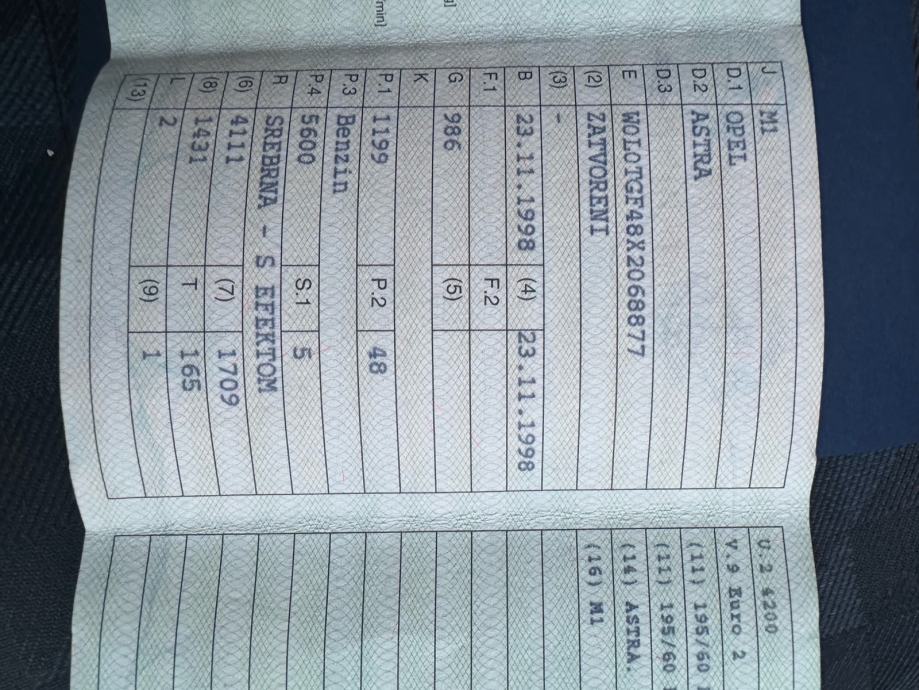 g]
min]
J M1
D.1 OPEL
D.2 ASTRA
D.3
E WOLOTGF48X2068877
(2) ZATVORENI
(3) -
B 23.11.1998 (4) 23.11.1998
F.1 F.2
G 986 (5)
K
P.1 1199 P.2 48
P.3 Benzin
P.4 5600 S.1 5
R SREBRNA - S EFEKTOM
(6) 4111 (7) 1709
(8) 1431 T 165
L 2 (9) 1
(13)
U.2 4200
V.9 Euro 2
(11) 195/60
(11) 195/60
(14) ASTRA.
(16) M1